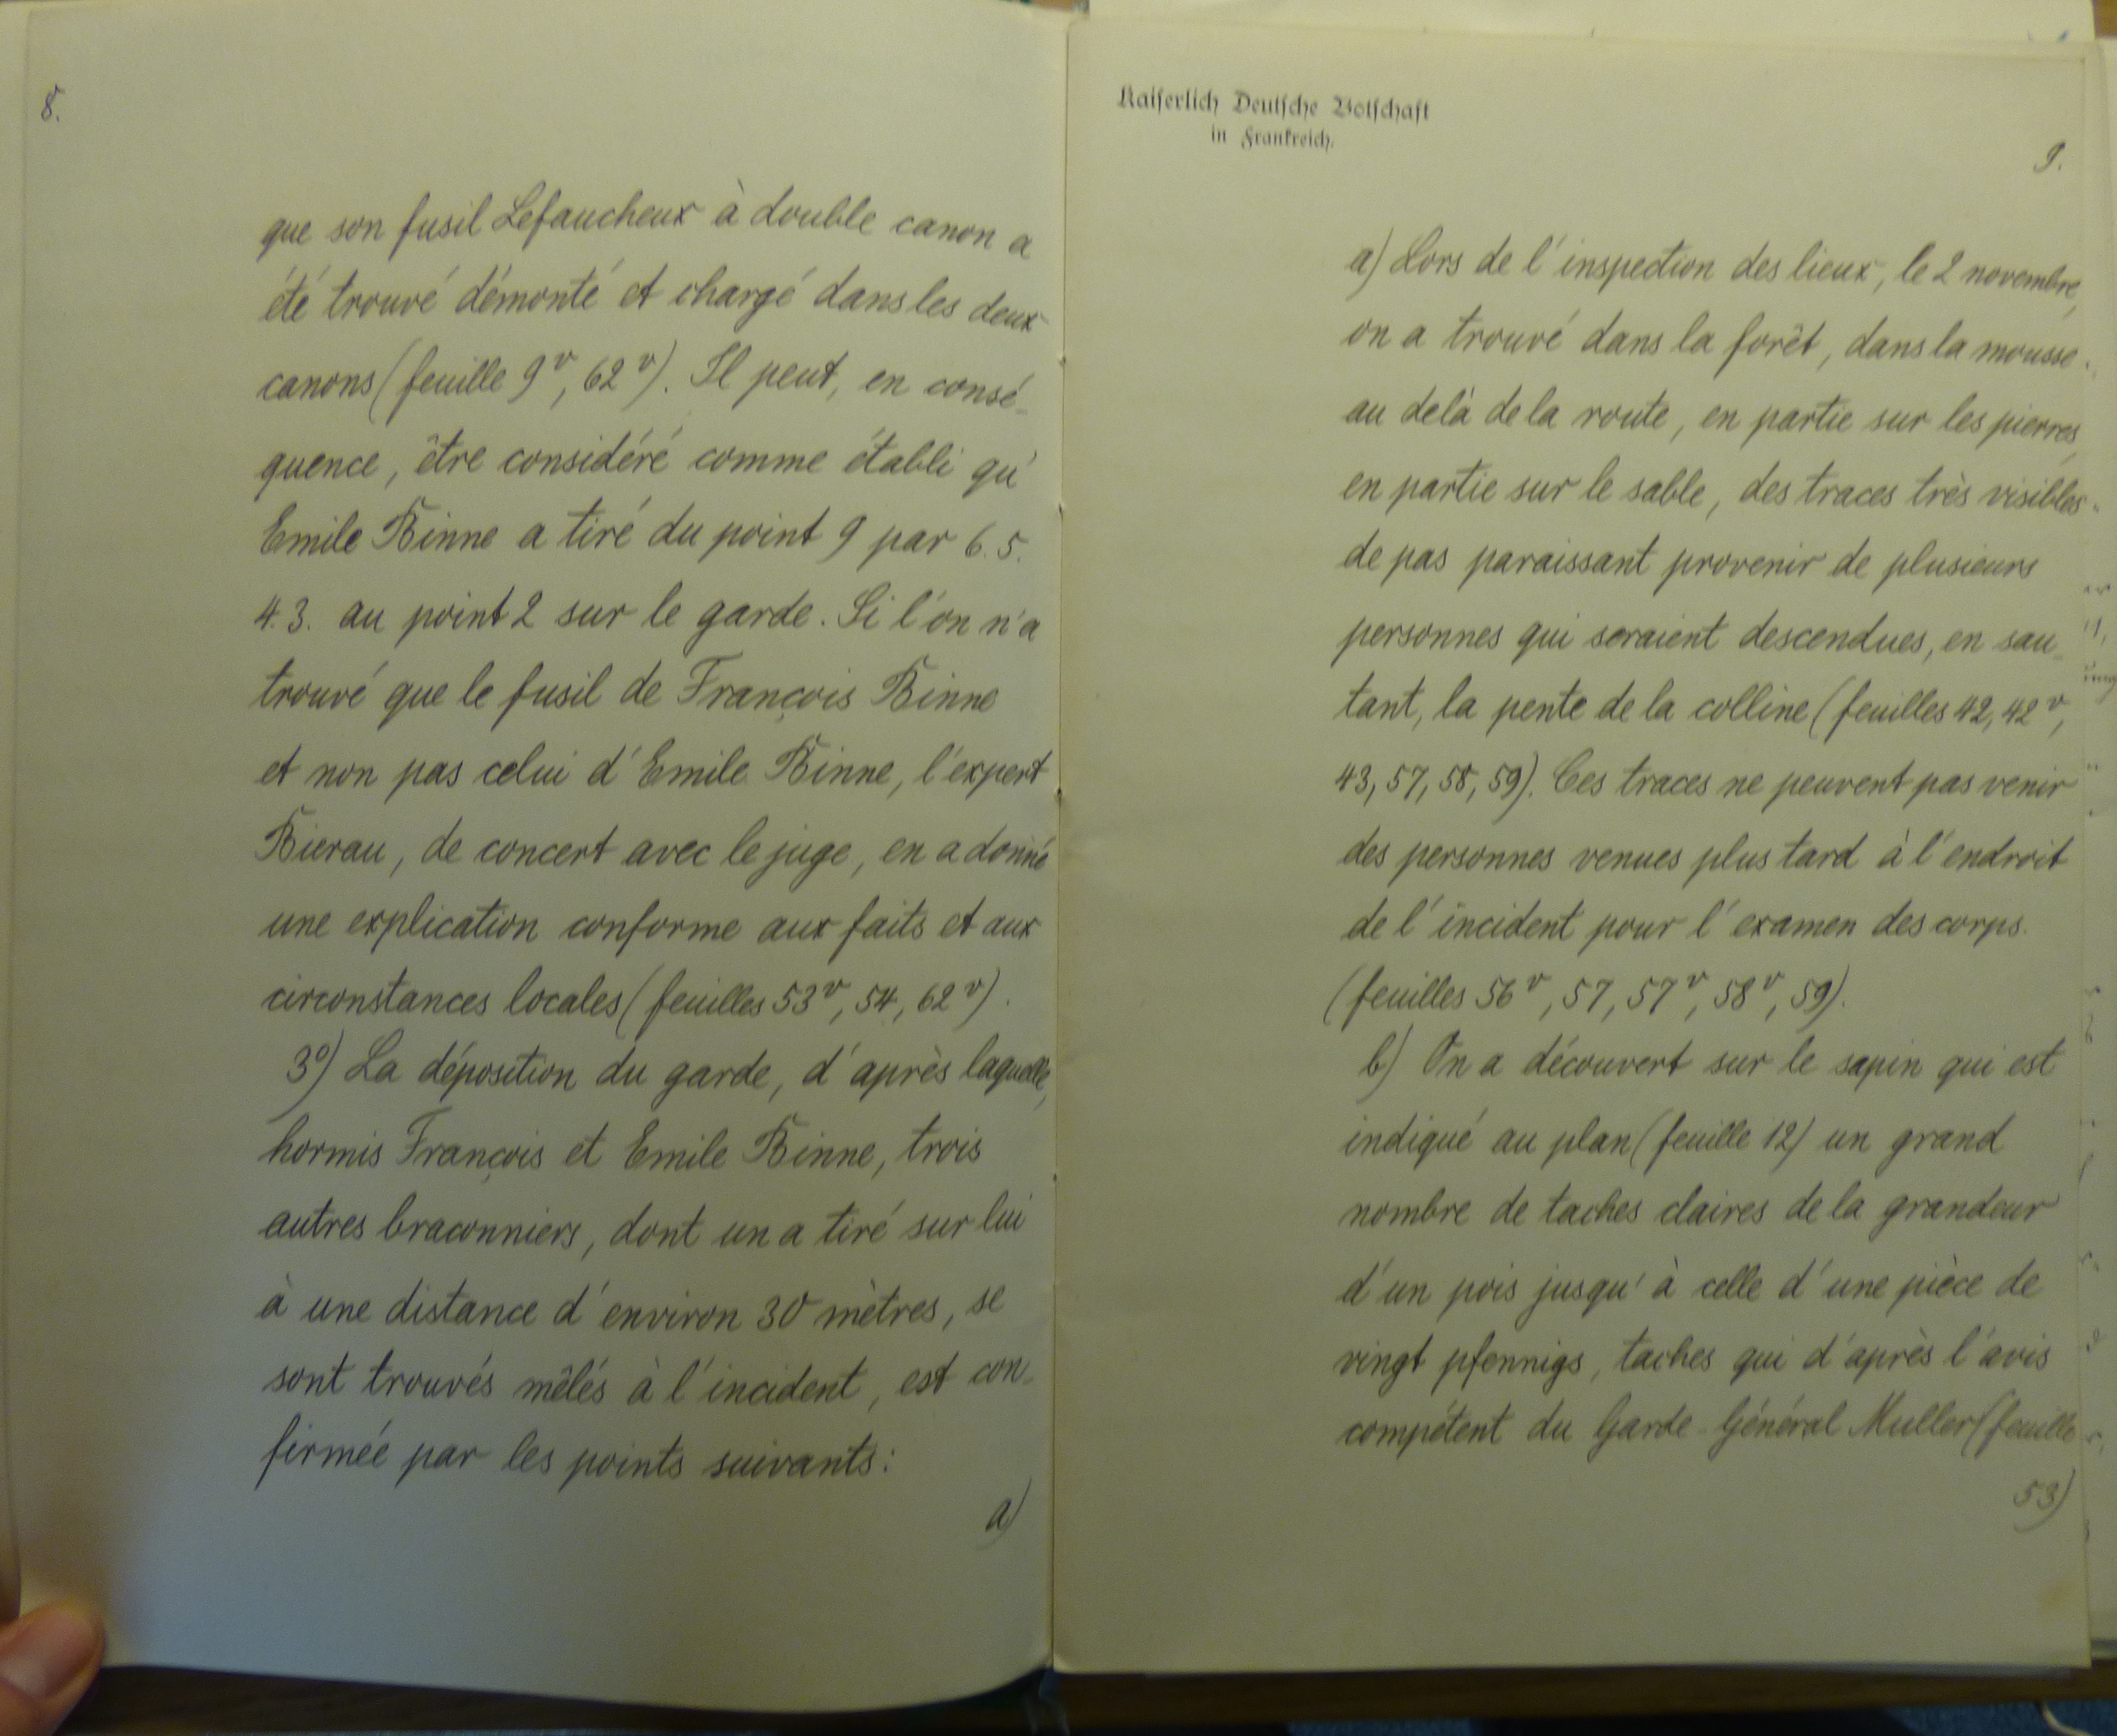 8.
que son fusil Lefaucheux à double canon a
été trouvé démonté et chargé dans les deux
canons (feuille 9ᵛ, 62ᵛ). Il peut, en consé-
quence, être considéré comme établi qu'
Emile Binne a tiré du point 9 par 6. 5.
4. 3. au point 2 sur le garde. Si l'on n'a
trouvé que le fusil de François Binne
et non pas celui d'Emile Binne, l'expert
Bierau, de concert avec le juge, en a donné
une explication conforme aux faits et aux
circonstances locales (feuilles 53ᵛ, 54, 62ᵛ).
3º) La déposition du garde, d'après laquelle,
hormis François et Emile Binne, trois
autres braconniers, dont un a tiré sur lui
à une distance d'environ 30 mètres, se
sont trouvés mêlés à l'incident, est con-
firmée par les points suivants:
a)
Kaiserlich Deutsche Botschaft
in Frankreich.
9.
a) Lors de l'inspection des lieux, le 2 novembre,
on a trouvé dans la forêt, dans la mousse
au delà de la route, en partie sur les pierres,
en partie sur le sable, des traces très visibles
de pas paraissant provenir de plusieurs
personnes qui seraient descendues, en sau-
tant, la pente de la colline (feuilles 42, 42ᵛ,
43, 57, 58, 59). Ces traces ne peuvent pas venir
des personnes venues plus tard à l'endroit
de l'incident pour l'examen des corps.
(feuilles 56ᵛ, 57, 57ᵛ, 58ᵛ, 59).
b) On a découvert sur le sapin qui est
indiqué au plan (feuille 12) un grand
nombre de taches claires de la grandeur
d'un pois jusqu'à celle d'une pièce de
vingt pfennigs, taches qui d'après l'avis
compétent du Garde-Général Muller (feuille
53)